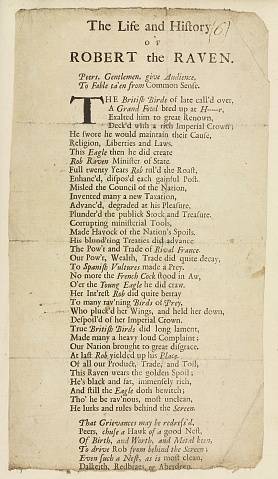 The Life and History
OF
ROBERT the RAVEN.
Peers, Gentlemen, give Audience,
To Fable ta'en from Common Sense.
THE British Birds of late call'd over,
A Grand Fowl bred up at H---r,
Exalted him to great Renown,
Deck'd with a rich Imperial Crown;
He swore he would maintain their Cause,
Religion, Liberties and Laws.
This Eagle then he did create
Rob Raven Minister of State.
Full twenty Years Rob rul'd the Roast,
Enhanc'd, dispos'd each gainful Post.
Misled the Council of the Nation,
Invented many a new Taxation,
Advanc'd, degraded at his Pleasure,
Plunder'd the publick Stock and Treasure.
Corrupting ministerial Tools,
Made Havock of the Nation's Spoils.
His blund'ring Treaties did advance
The Pow'r and Trade of Rival France.
Our Pow'r, Wealth, Trade did quite decay,
To Spanish Vultures made a Prey.
No more the French Cock stood in Aw,
O'er the Young Eagle he did craw.
Her Int'rest Rob did quite betray
To many rav'ning Birds of Prey.
Who pluck'd her Wings, and held her down,
Despoil'd of her Imperial Crown.
True British Birds did long lament,
Made many a heavy loud Complaint;
Our Nation brought to great disgrace.
At last Rob yielded up his Place.
Of all our Product, Trade, and Toil,
This Raven wears the golden Spoil;
He's black and fat, immensely rich,
And still the Eagle doth bewitch;
Tho' he be rav'nous, most unclean,
He lurks and rules behind the Screen.
That Grievances may be redress'd,
Peers, chuse a Hawk of a good Nest,
Of Birth, and Worth, and Metal keen,
To drive Rob from behind the Screen;
Even such a Nest, as is most clean,
Dalkeith, Redbraes, or Aberdeen.